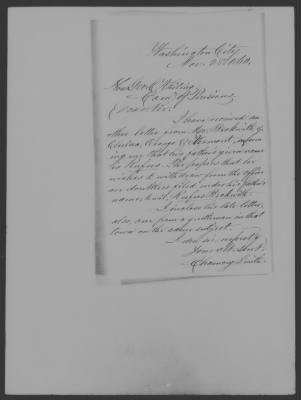 Washington City
Nov. 23d 1860.
Hon Geo C Whiting
Com. of Pensions
Dear Sir.
I have received an
other letter from Mr. Beckwith of
Chelsea, Orange Co Vermont, inform
ing me that his father's given name
is Rufus. The papers that he
wishes to withdraw from the office
are doubtless filed under his father's
name, to wit, Rufus Beckwith.
I inclose his late letter,
also, one from a gentleman in that
town on the same subject.
I am sir, respectfy
Your obt. Servt.
Chauncy Smith.